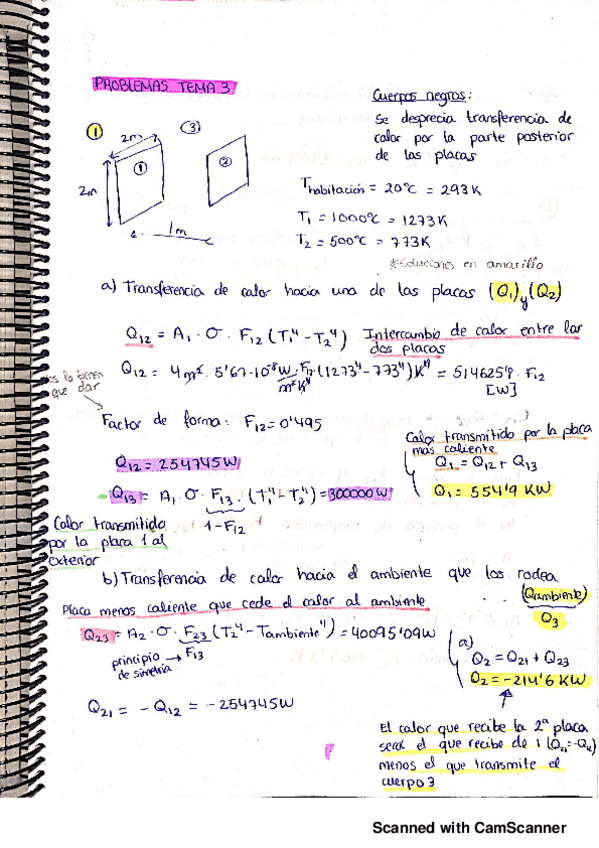 PROBLEMAS TEMA 3
Cuerpos negros:
Se desprecia transferencia de
calor por la parte posterior
de las placas
1
2m
3
2m
1
2
1m
Thabitación = 20ºC = 293K
T1 = 1000ºC = 1273K
T2 = 500ºC = 773K
*soluciones en amarillo
a) Transferencia de calor hacia una de las placas (Q1) y (Q2)
Q12 = A1 · σ · F12 (T1⁴ - T2⁴) Intercambio de calor entre las
dos placas
Q12 = 4m² · 5'67·10⁻⁸ W/m²K⁴ · F12 (1273⁴ - 773⁴) K⁴ = 514625'9 · F12
[W]
lo tienen
que dar
Factor de forma: F12 = 0'495
Q12 = 254745W
Q13 = A1 · σ · F13 · (T1⁴ - T2⁴) = 300000W
1-F12
Calor transmitido
por la placa 1 al
exterior
Calor transmitido por la placa
más caliente
Q1 = Q12 + Q13
Q1 = 554'9 KW
b) Transferencia de calor hacia el ambiente que los rodea
(Qambiente)
Q3
Placa menos caliente que cede el calor al ambiente
Q23 = A2 · σ · F23 (T2⁴ - Tambiente⁴) = 40095'09W
principio → F13
de simetría
a)
Q2 = Q21 + Q23
Q2 = -214'6 KW
Q21 = - Q12 = -254745W
El calor que recibe la 2ª placa
será el que recibe de 1
menos el que transmite el
cuerpo 3
Scanned with CamScanner